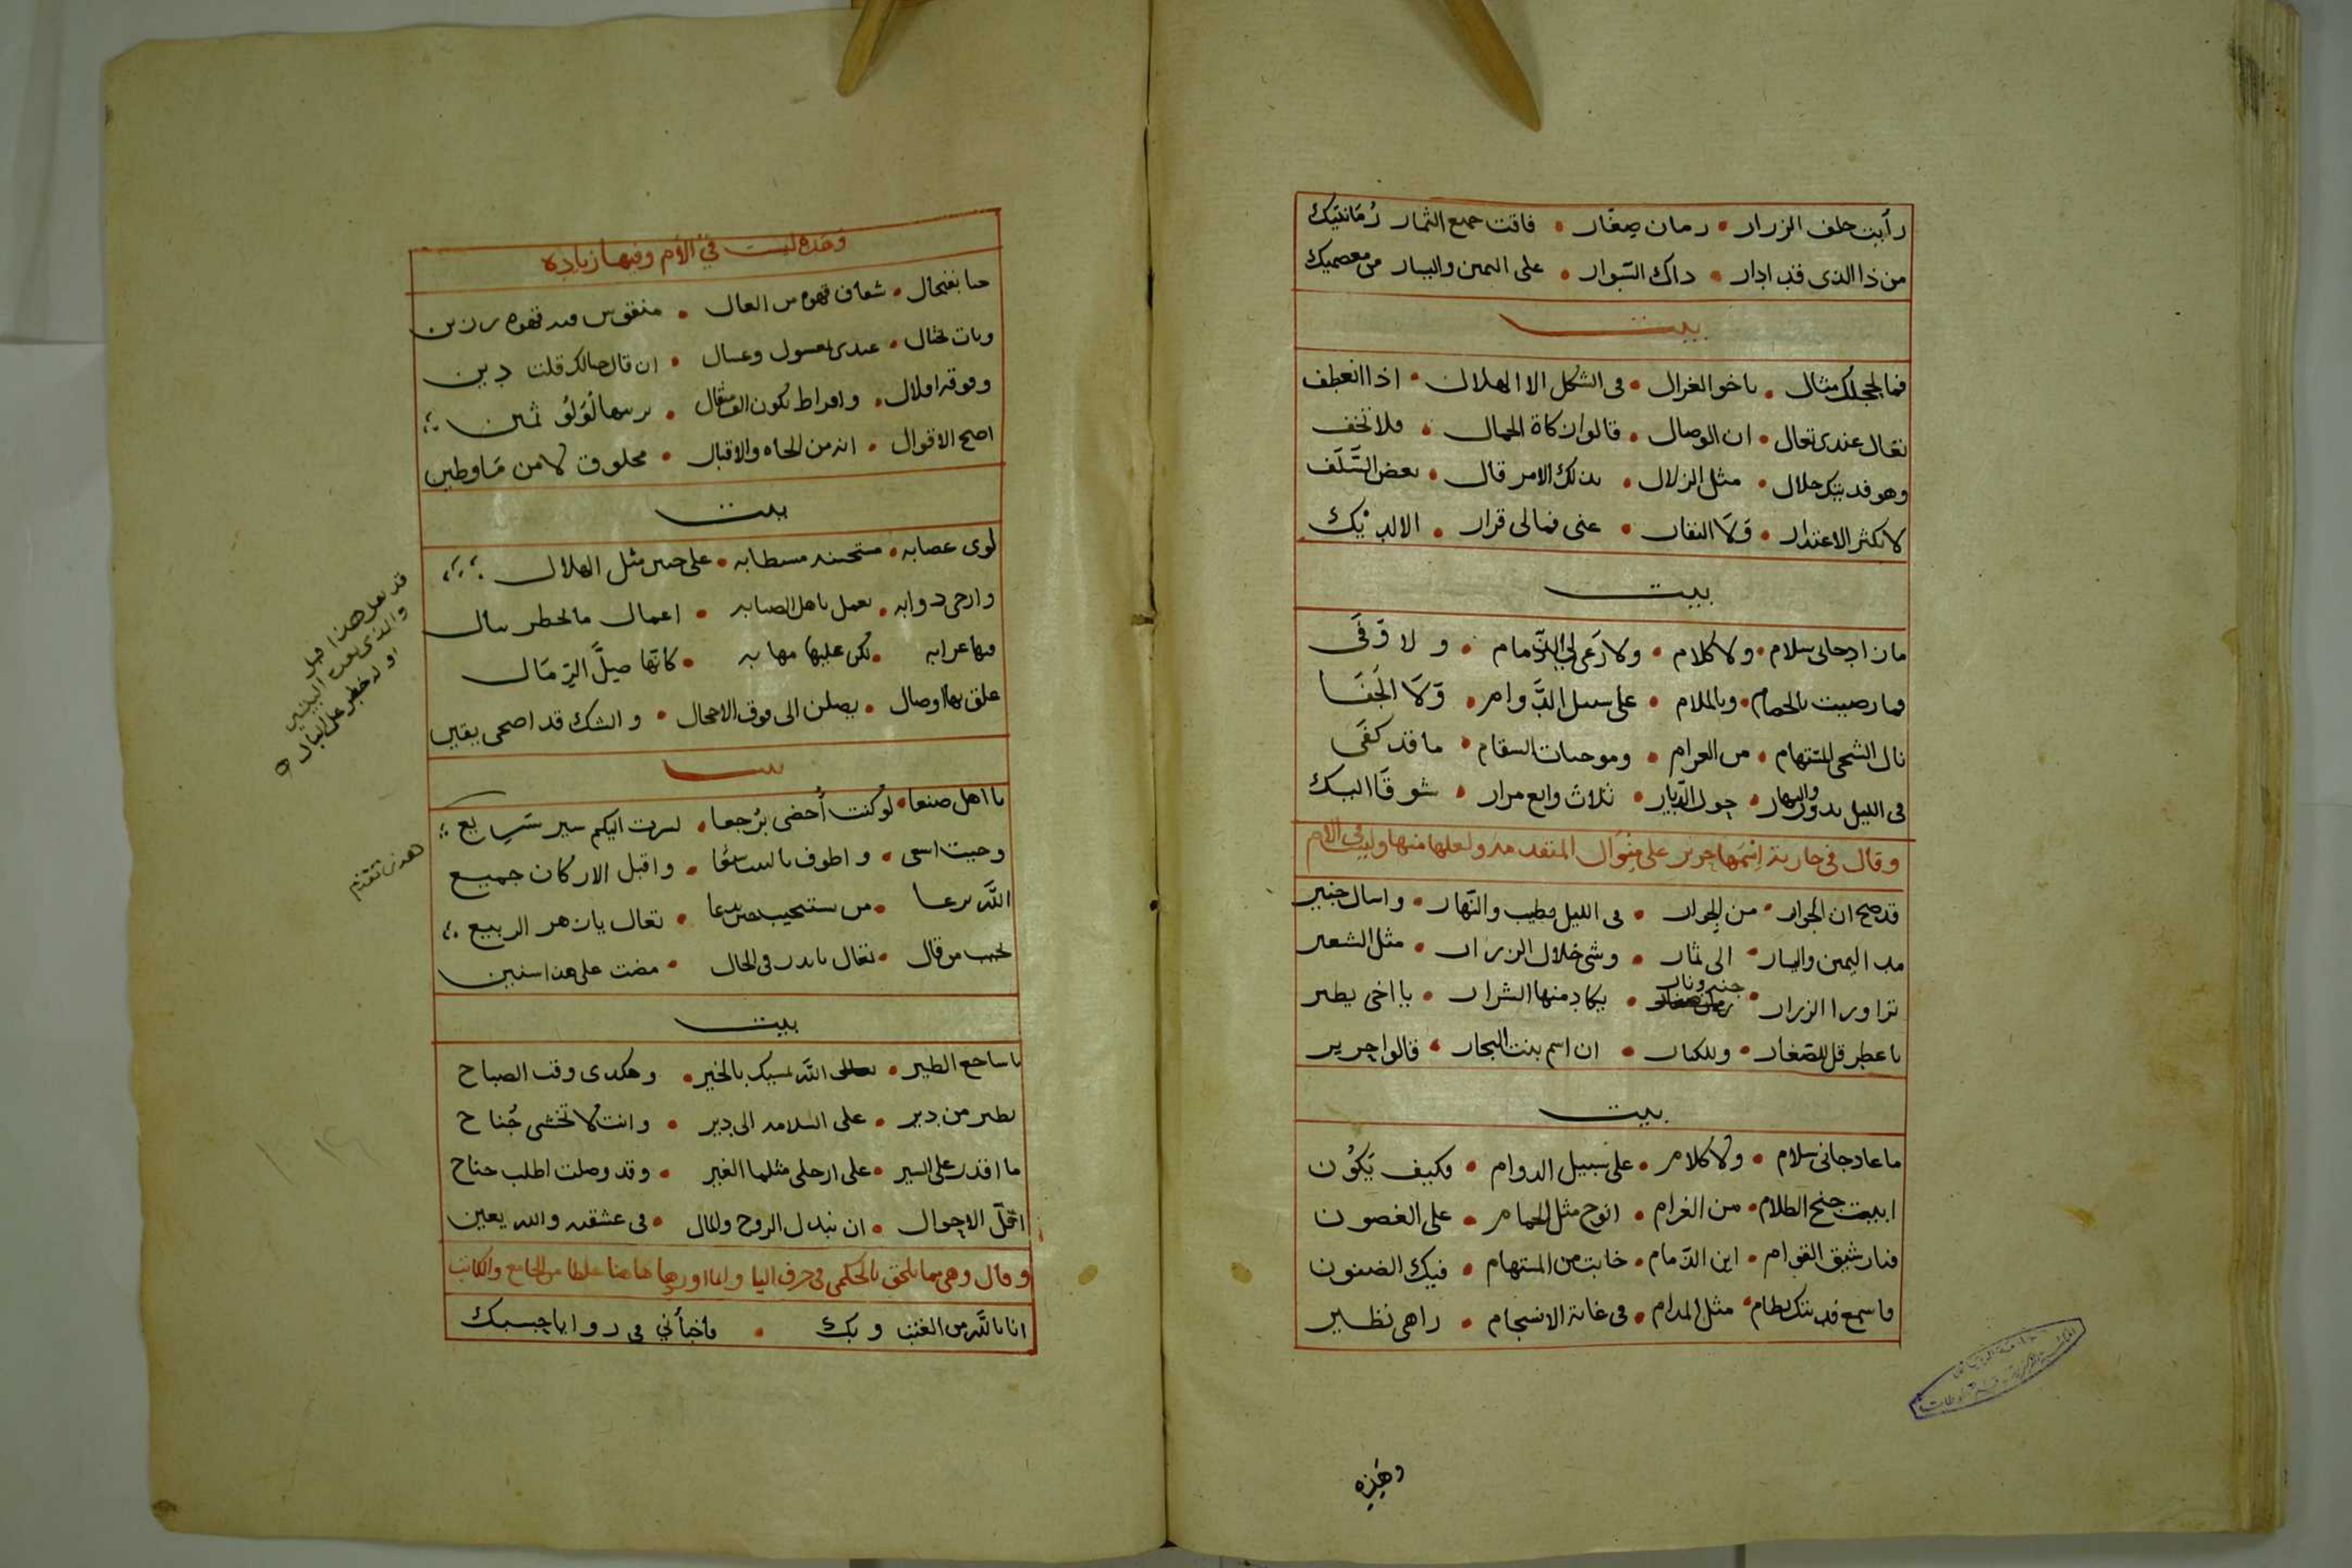 رأيت خلف الزرار • رمان صغار • فاقت جميع الثمار رُمانتيك
من ذا الذى قد ادار • داك السّوار • على اليمين واليسار من معصميك
بيت
فما لحجلك مثال • ياخو الغزال • فى الشكل الا الهلال • اذا انعطف
تعال عندى تعال • ان الوصال • قالوا زكاة الجمال • فلا تخف
وهو فديتك حلال • مثل الزلال • بذلك الامر قال • بعض السَّلَف
لا تكثر الاعتذار • وَلَا النفار • عنى فمالى قرار • الا لديْك
بيت
مازاد جانى سلام • ولا كلام • ولا رَعى لى الذّمام • ولا وَفَى
فما رضيت بالخصام • وبالملام • على سبيل الدَّوام • وَلَا الجَفَا
نال الشجى المستهام • من الغرام • وموجبات السقام • ما قد كفَى
فى الليل يدور والنهار • حول الدّيار • ثلاث واربع مرار • شوقًا اليك
وقال فى جارية اسمها حرير على منوال المتقدمه ولعلها منها وليس فى الام
قد صح ان الجوار • من الجوار • فى الليل يطيب والنّهار • واسال خبير
مد اليمين واليسار • الى ثمار • وشى خلال الزرار • مثل الشعير
ترا ورا الزرار • جنه ونار • يكاد منها الشرار • يا اخى يطير
يا عطر قل للصّغار • وللكبار • ان اسم بنت البحار • قالوا حرير
بيت
ما عاد جانى سلام • ولا كلام • على سبيل الدوام • وكيف يَكوُن
ابيت جنح الظلام • من الغرام • انوح مثل الحمام • على الغصون
فيا رشيق القوام • اين الذمام • خابت من المستهام • فيك الضنون
فاسمع فديتك نظام • مثل المدام • فى غاية الانسجام • زاهى نظير
وهَذِه
وهَذِه ليست فى الأم وفيها زياده
حيا بفنجال • شعاف قهوه من العال •
وبات يختال • عندى بعسول وعسال • ان قال حالك قلت دين
وفوقه املال • واقراط تكون الف مثقال • لؤلؤ ثمين
اصح الاقوال • انه من الجاه والاقبال • مخلوق لا من مَا وطين
بيت
لوى عصابه • مستحسنه مسطابه • على جبين مثل الهلال
وارخى ذوابه • تعمل باهل الصبابه • اعمال ما تخطر ببال
فيها غرابه • لكن عليها مهابه • كانّها صِلَّ الرِّمَال
علق بها اوصال • يصلن الى فوق الاحجال • والشك قد اضحى يقين
بيت
يا اهل صنعا • لو كنت أُحضى برُجعا • لسرت اليكم سير سَرِيع
وجيت اسعى • واطوف بالبيت سبعًا • واقبل الاركان جميع
الله يرعا • من يستجيب حين يدعا • تعال يا زهر الربيع
من قال • تعال يا بدر فى الحال • مضت على هذا سنين
بيت
يا ساجع الطير • الله يمسيك بالخير • وهكذى وقت الصباح
تطير من دير • على السلامه الى دير • وانت لا تخشى جُناح
ما اقدر على السير • على ارجلى مثلما الغير • وقد وصلت اطلب جناح
اقلّ الاحوال • ان نبذل الروح والمال • فى عشقه والله يعين
وقال وهى مما تلحق بالحكمى فى حرف اليا وانما اوردها هاهنا غلطا من الجامع والكاتب
انا بالله من الغبب وبك • واخبأنى فى زوايا جيبك
قد نقل هذا قبل
والذى بعده البيتين
اوله خطر على البال
هذى تقدم